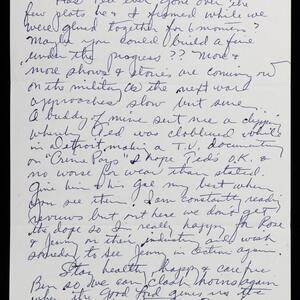 Has Ted ever gone over the
few plots he & I framed while we
were glued together for 6 months?
Maybe you could build a fire
under the progress?? More &
more shows & stories are coming out
on the military as the next wave
approaches slow but sure.
A buddy of mine sent me a clipping
whereby Ted was clobbered while
in Detroit making a T.V. documentary
on "Crime Pays" I hope Ted's O.K. &
no worse for wear than stated.
Give him & his gal my best when
you see them. I am constantly reading
reviews but out here we don't get
the dope so I'm really happy for Rose
& Jenny on their industry and wish
someday to see Jenny in action again.
Stay healthy, happy & care free
Bip, so we can clash horns again
when the Good Lord gives me the